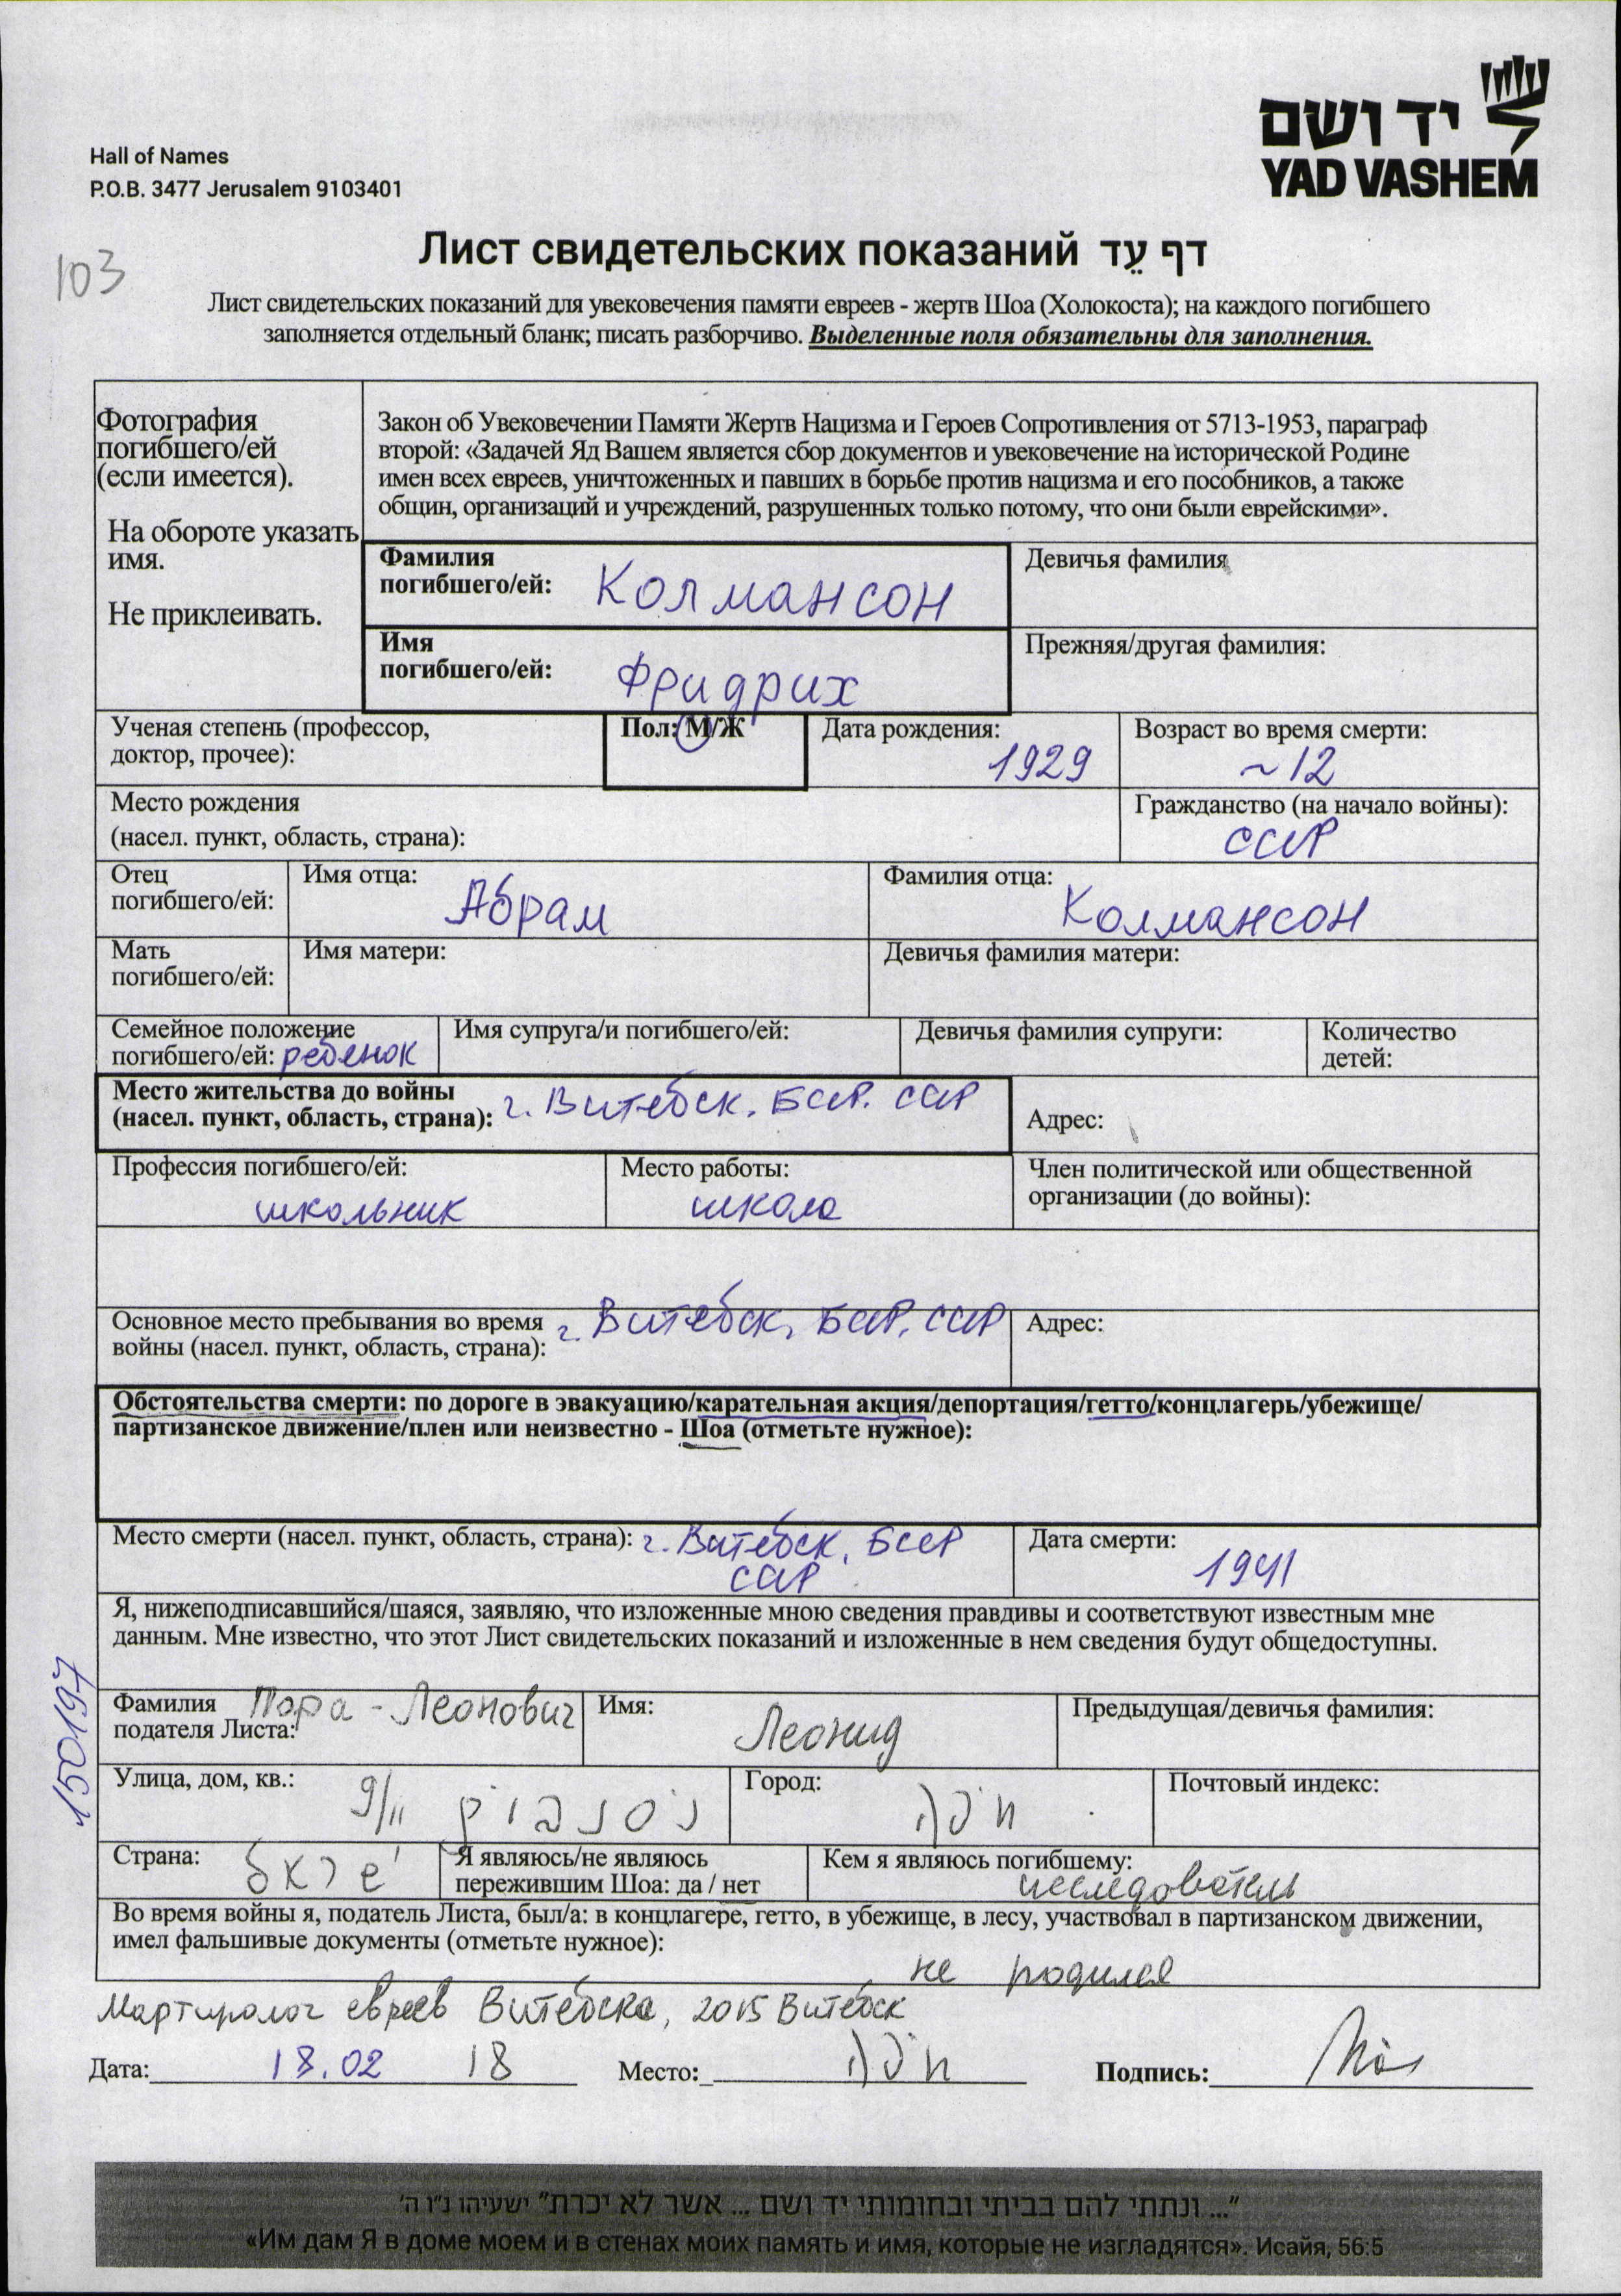 Hall of Names
P.O.B. 3477 Jerusalem 9103401
יד ושם
YAD VASHEM
103
Лист свидетельских показаний דף עֵד
Лист свидетельских показаний для увековечения памяти евреев - жертв Шоа (Холокоста); на каждого погибшего
заполняется отдельный бланк; писать разборчиво. Выделенные поля обязательны для заполнения.
Фотография
погибшего/ей
(если имеется).
На обороте указать
имя.
Не приклеивать.
Закон об Увековечении Памяти Жертв Нацизма и Героев Сопротивления от 5713-1953, параграф
второй: «Задачей Яд Вашем является сбор документов и увековечение на исторической Родине
имен всех евреев, уничтоженных и павших в борьбе против нацизма и его пособников, а также
общин, организаций и учреждений, разрушенных только потому, что они были еврейскими».
Фамилия
погибшего/ей: Колмансон
Девичья фамилия
Имя
погибшего/ей: Фридрих
Прежняя/другая фамилия:
Ученая степень (профессор,
доктор, прочее):
Пол: М/Ж
Дата рождения:
1929
Возраст во время смерти:
~12
Место рождения
(насел. пункт, область, страна):
Гражданство (на начало войны):
СССР
Отец
погибшего/ей:
Имя отца:
Абрам
Фамилия отца:
Колмансон
Мать
погибшего/ей:
Имя матери:
Девичья фамилия матери:
Семейное положение
погибшего/ей: ребенок
Имя супруга/и погибшего/ей:
Девичья фамилия супруги:
Количество
детей:
Место жительства до войны
(насел. пункт, область, страна): г. Витебск, БССР. СССР
Адрес:
Профессия погибшего/ей:
школьник
Место работы:
школа
Член политической или общественной
организации (до войны):
Основное место пребывания во время
войны (насел. пункт, область, страна): г. Витебск, БССР, СССР
Адрес:
Обстоятельства смерти: по дороге в эвакуацию/карательная акция/депортация/гетто/концлагерь/убежище/
партизанское движение/плен или неизвестно - Шоа (отметьте нужное):
Место смерти (насел. пункт, область, страна): г. Витебск, БССР
СССР
Дата смерти:
1941
Я, нижеподписавшийся/шаяся, заявляю, что изложенные мною сведения правдивы и соответствуют известным мне
данным. Мне известно, что этот Лист свидетельских показаний и изложенные в нем сведения будут общедоступны.
150197
Фамилия
податели Листа: Пора-Леонович
Имя:
Леонид
Предыдущая/девичья фамилия:
Улица, дом, кв.:
9/11
Город:
חיפה
Почтовый индекс:
Страна:
ישראל
Я являюсь/не являюсь
пережившим Шоа: да / нет
Кем я являюсь погибшему:
исследователь
Во время войны я, податель Листа, был/а: в концлагере, гетто, в убежище, в лесу, участвовал в партизанском движении,
имел фальшивые документы (отметьте нужное):
не родился
Мартиролог евреев Витебска, 2015 Витебск
Дата: 18.02 18
Место: חיפה
Подпись:
"... ונתתי להם בביתי ובחומותי יד ושם ... אשר לא יכרת" ישעיהו נ"ו ה'
«Им дам Я в доме моем и в стенах моих память и имя, которые не изгладятся». Исайя, 56:5